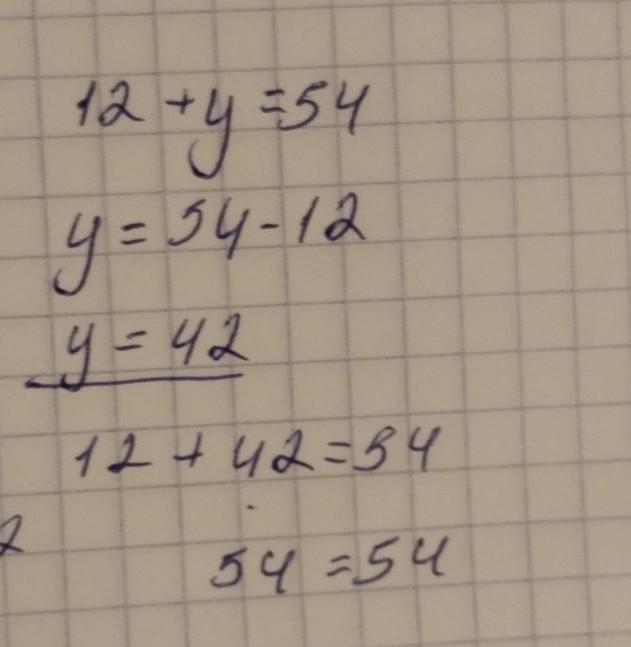 12 + y = 54
y = 54 - 12
y = 42
12 + 42 = 54
54 = 54